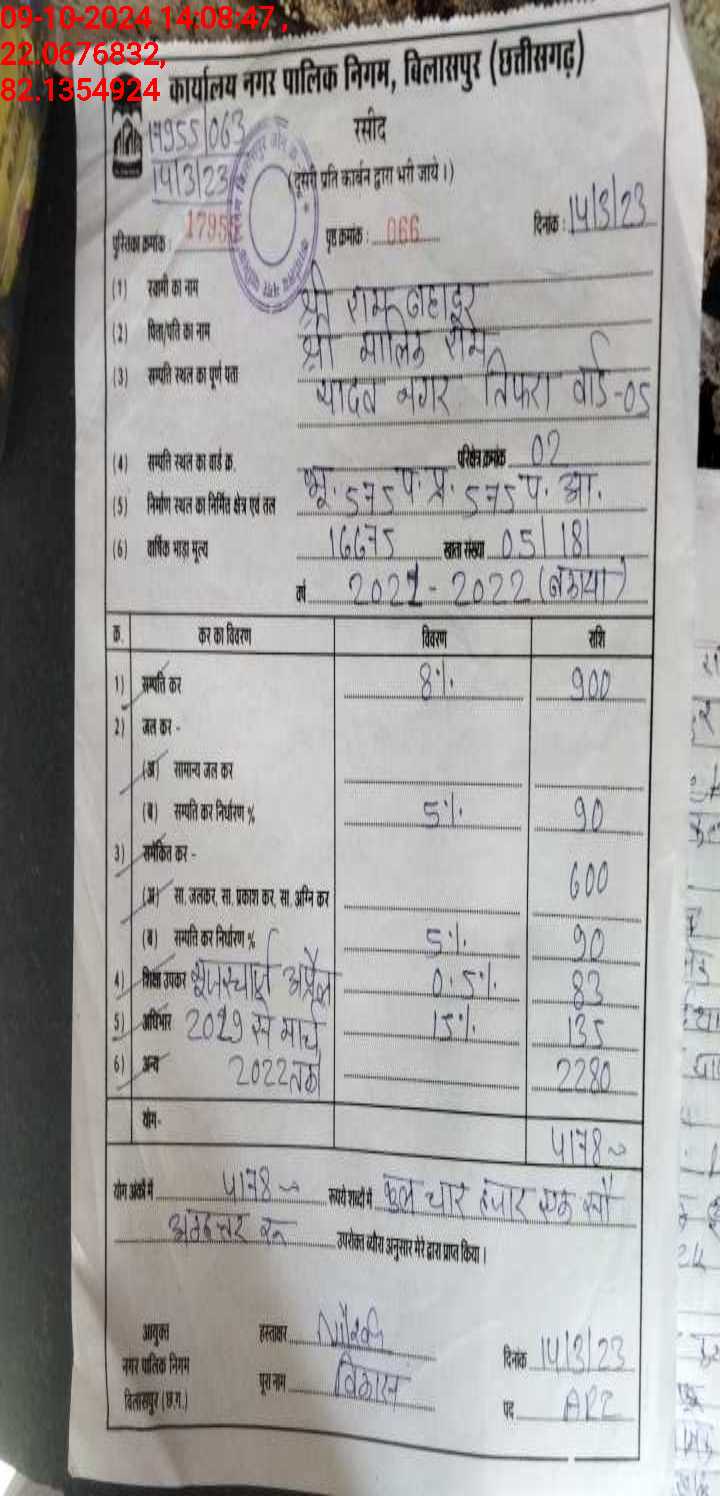 09-10-2024 14:08:47 ,
22.0676832,
82.1354924
कार्यालय नगर पालिक निगम, बिलासपुर (छत्तीसगढ़)
17955/063
रसीद
14/3/23
(दूसरी प्रति कार्बन द्वारा भरी जाये।)
पुस्तिका क्रमांक : 1795 पृष्ठ क्रमांक : 066 दिनांक : 14/3/23
(1) स्वामी का नाम श्री राम बहादुर
(2) पिता/पति का नाम श्री मालिक राम
(3) सम्पत्ति स्थल का पूर्ण पता यादव नगर तिफरा वार्ड-05
(4) सम्पत्ति स्थल का वार्ड क्र. परिक्षेत्र क्रमांक 02
(5) निर्माण स्थल का निर्मित क्षेत्र एवं तल भू. 575 प. प्र. 575 प. आ.
(6) वार्षिक भाड़ा मूल्य 16675 खाता संख्या 05/181
वर्ष 2021-2022 (बकाया)
क्र. कर का विवरण विवरण राशि
1) सम्पत्ति कर 8% 900
2) जल कर -
(अ) सामान्य जल कर
(ब) सम्पत्ति कर निर्धारण % 5% 90
3) समेकित कर -
(अ) सा. जलकर, सा. प्रकाश कर, सा. अग्नि कर 600
(ब) सम्पत्ति कर निर्धारण % 5% 90
4) शिक्षा उपकर अप्रैल 0.5% 83
5) अधिभार 2019 से मार्च 15% 135
6) अन्य 2022 तक 2280
योग- 4178
योग अंकों में 4178 रूपये शब्दों में कुल चार हजार एक सौ
अठहत्तर रू उपरोक्त ब्यौरा अनुसार मेरे द्वारा प्राप्त किया।
आयुक्त हस्ताक्षर
नगर पालिक निगम दिनांक 14/3/23
बिलासपुर (छ.ग.) पूरा नाम विकास पद ARI